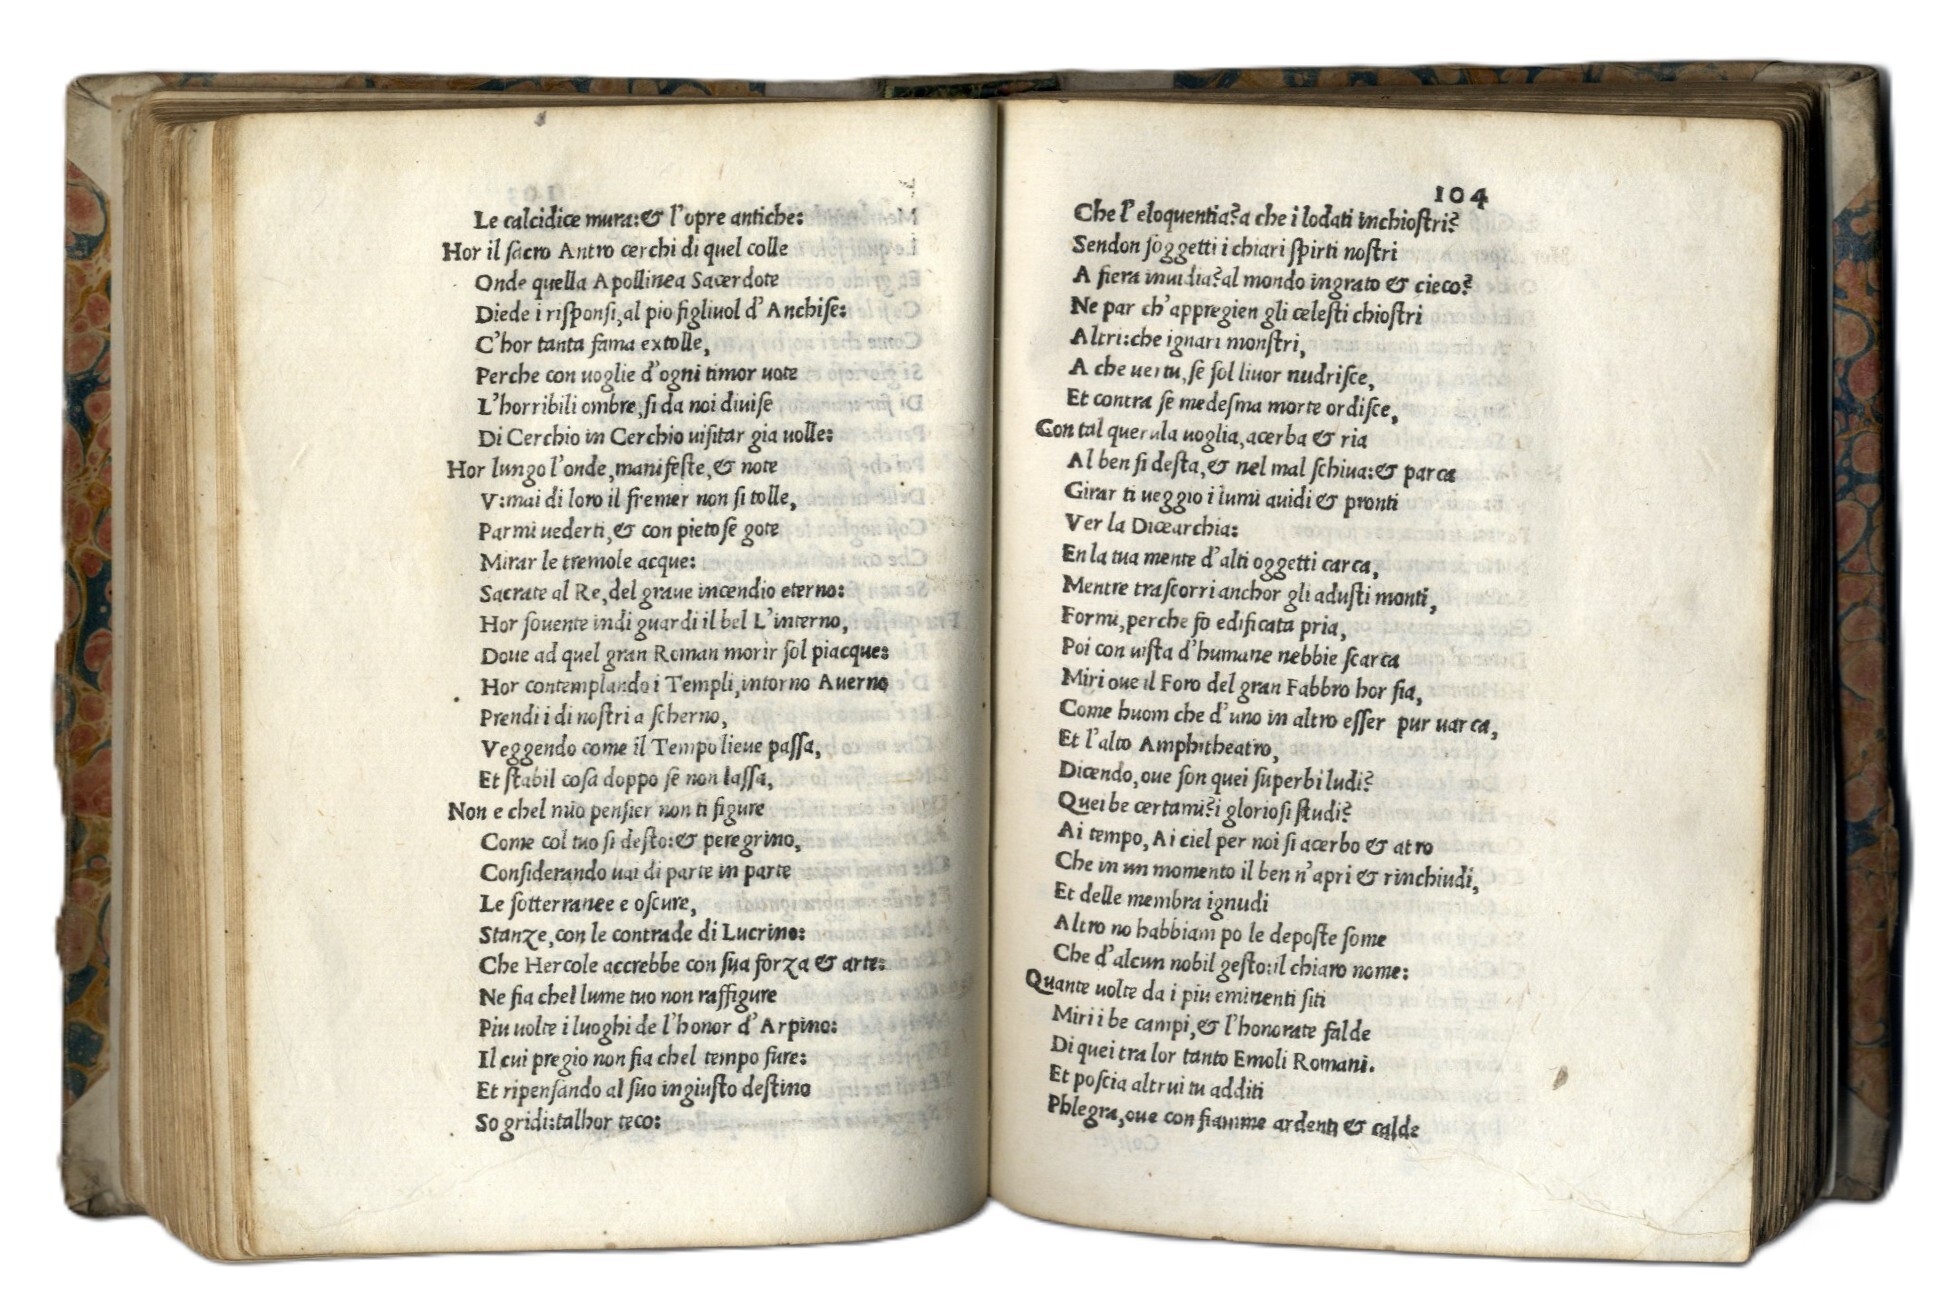 Le calcidice mura:& l'opre antiche:
Hor il ſacro Antro cerchi di quel colle
Onde quella Apollinea Sacerdote
Diede i riſponſi,al pio figliuol d'Anchiſe:
C'hor tanta fama extolle,
Perche con uoglie d'ogni timor uote
L'horribili ombre,ſi da noi diuiſe
Di Cerchio in Cerchio uiſitar gia uolle:
Hor lungo l'onde,manifeſte,& note
V:mai di loro il fremer non ſi tolle,
Parmi uederti,& con pietoſe gote
Mirar le tremole acque:
Sacrate al Re,del graue incendio eterno:
Hor ſouente indi guardi il bel L'interno,
Doue ad quel gran Roman morir ſol piacque:
Hor contemplando i Templi,intorno Auerno
Prendi i di noſtri a ſcherno,
Veggendo come il Tempo lieue paſſa,
Et ſtabil coſa doppo ſe non laſſa,
Non e chel mio penſier non ti figure
Come col tuo ſi deſto:& peregrino,
Conſiderando uai di parte in parte
Le ſotterranee e oſcure,
Stanze,con le contrade di Lucrino:
Che Hercole accrebbe con ſua forza & arte:
Ne fia chel lume tuo non raffigure
Piu uolte i luoghi de l'honor d'Arpino:
Il cui pregio non fia chel tempo fure:
Et ripenſando al ſuo ingiuſto deſtino
So gridi:talhor teco:
104
Che l'eloquentia?a che i lodati inchioſtri?
Sendon ſoggetti i chiari ſpirti noſtri
A fiera inuidia?al mondo ingrato & cieco?
Ne par ch'appregien gli celeſti chioſtri
Altri:che ignari monſtri,
A che uertu,ſe ſol liuor nudriſce,
Et contra ſe medeſma morte ordiſce,
Con tal querula uoglia,acerba & ria
Al ben ſi deſta,& nel mal ſchiua:& parca
Girar ti ueggio i lumi auidi & pronti
Ver la Dicearchia:
En la tua mente d'alti oggetti carca,
Mentre traſcorri anchor gli aduſti monti,
Formi,perche fo edificata pria,
Poi con uiſta d'humane nebbie ſcarca
Miri oue il Foro del gran Fabbro hor ſia,
Come huom che d'uno in altro eſſer pur uarca,
Et l'alto Amphitheatro,
Dicendo,oue ſon quei ſuperbi ludi?
Quei be certami?i glorioſi ſtudi?
Ai tempo,Ai ciel per noi ſi acerbo & atro
Che in un momento il ben n'apri & rinchiudi,
Et delle membra ignudi
Altro no habbiam po le depoſte ſome
Che d'alcun nobil geſto:il chiaro nome:
Quante uolte da i piu eminenti ſiti
Miri i be campi,& l'honorate falde
Di quei tra lor tanto Emoli Romani.
Et poſcia altrui tu additi
Phlegra,oue con fiamme ardenti & calde